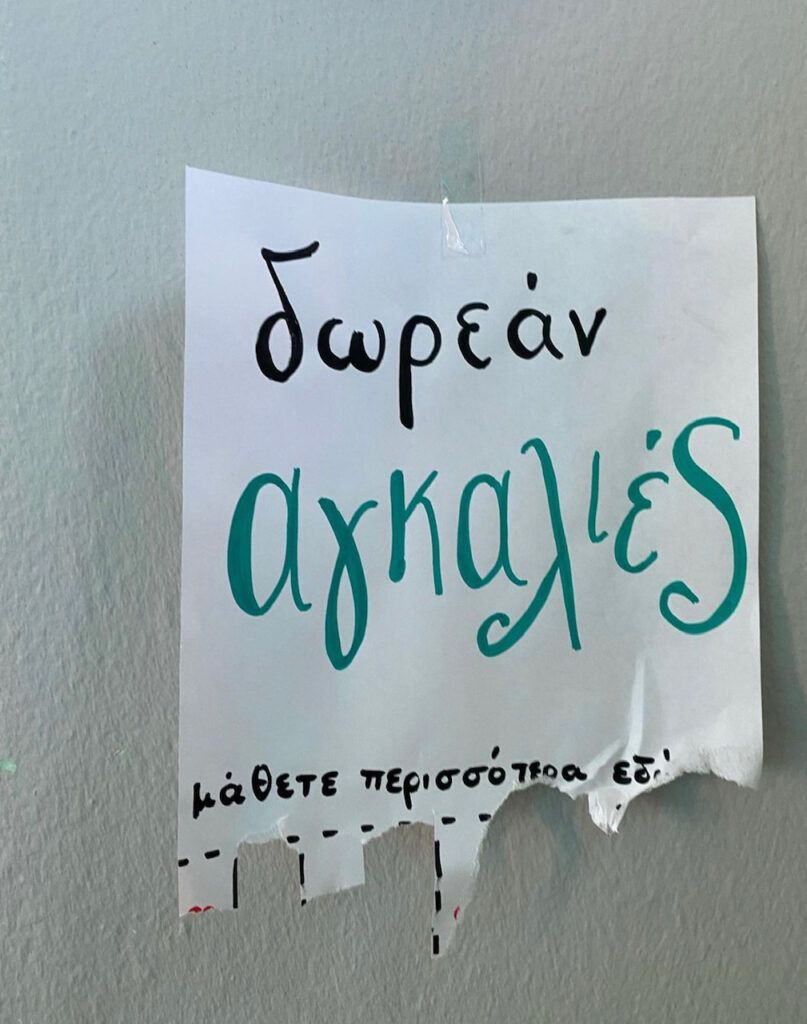 δωρεάν
αγκαλιές
μάθετε περισσότερα